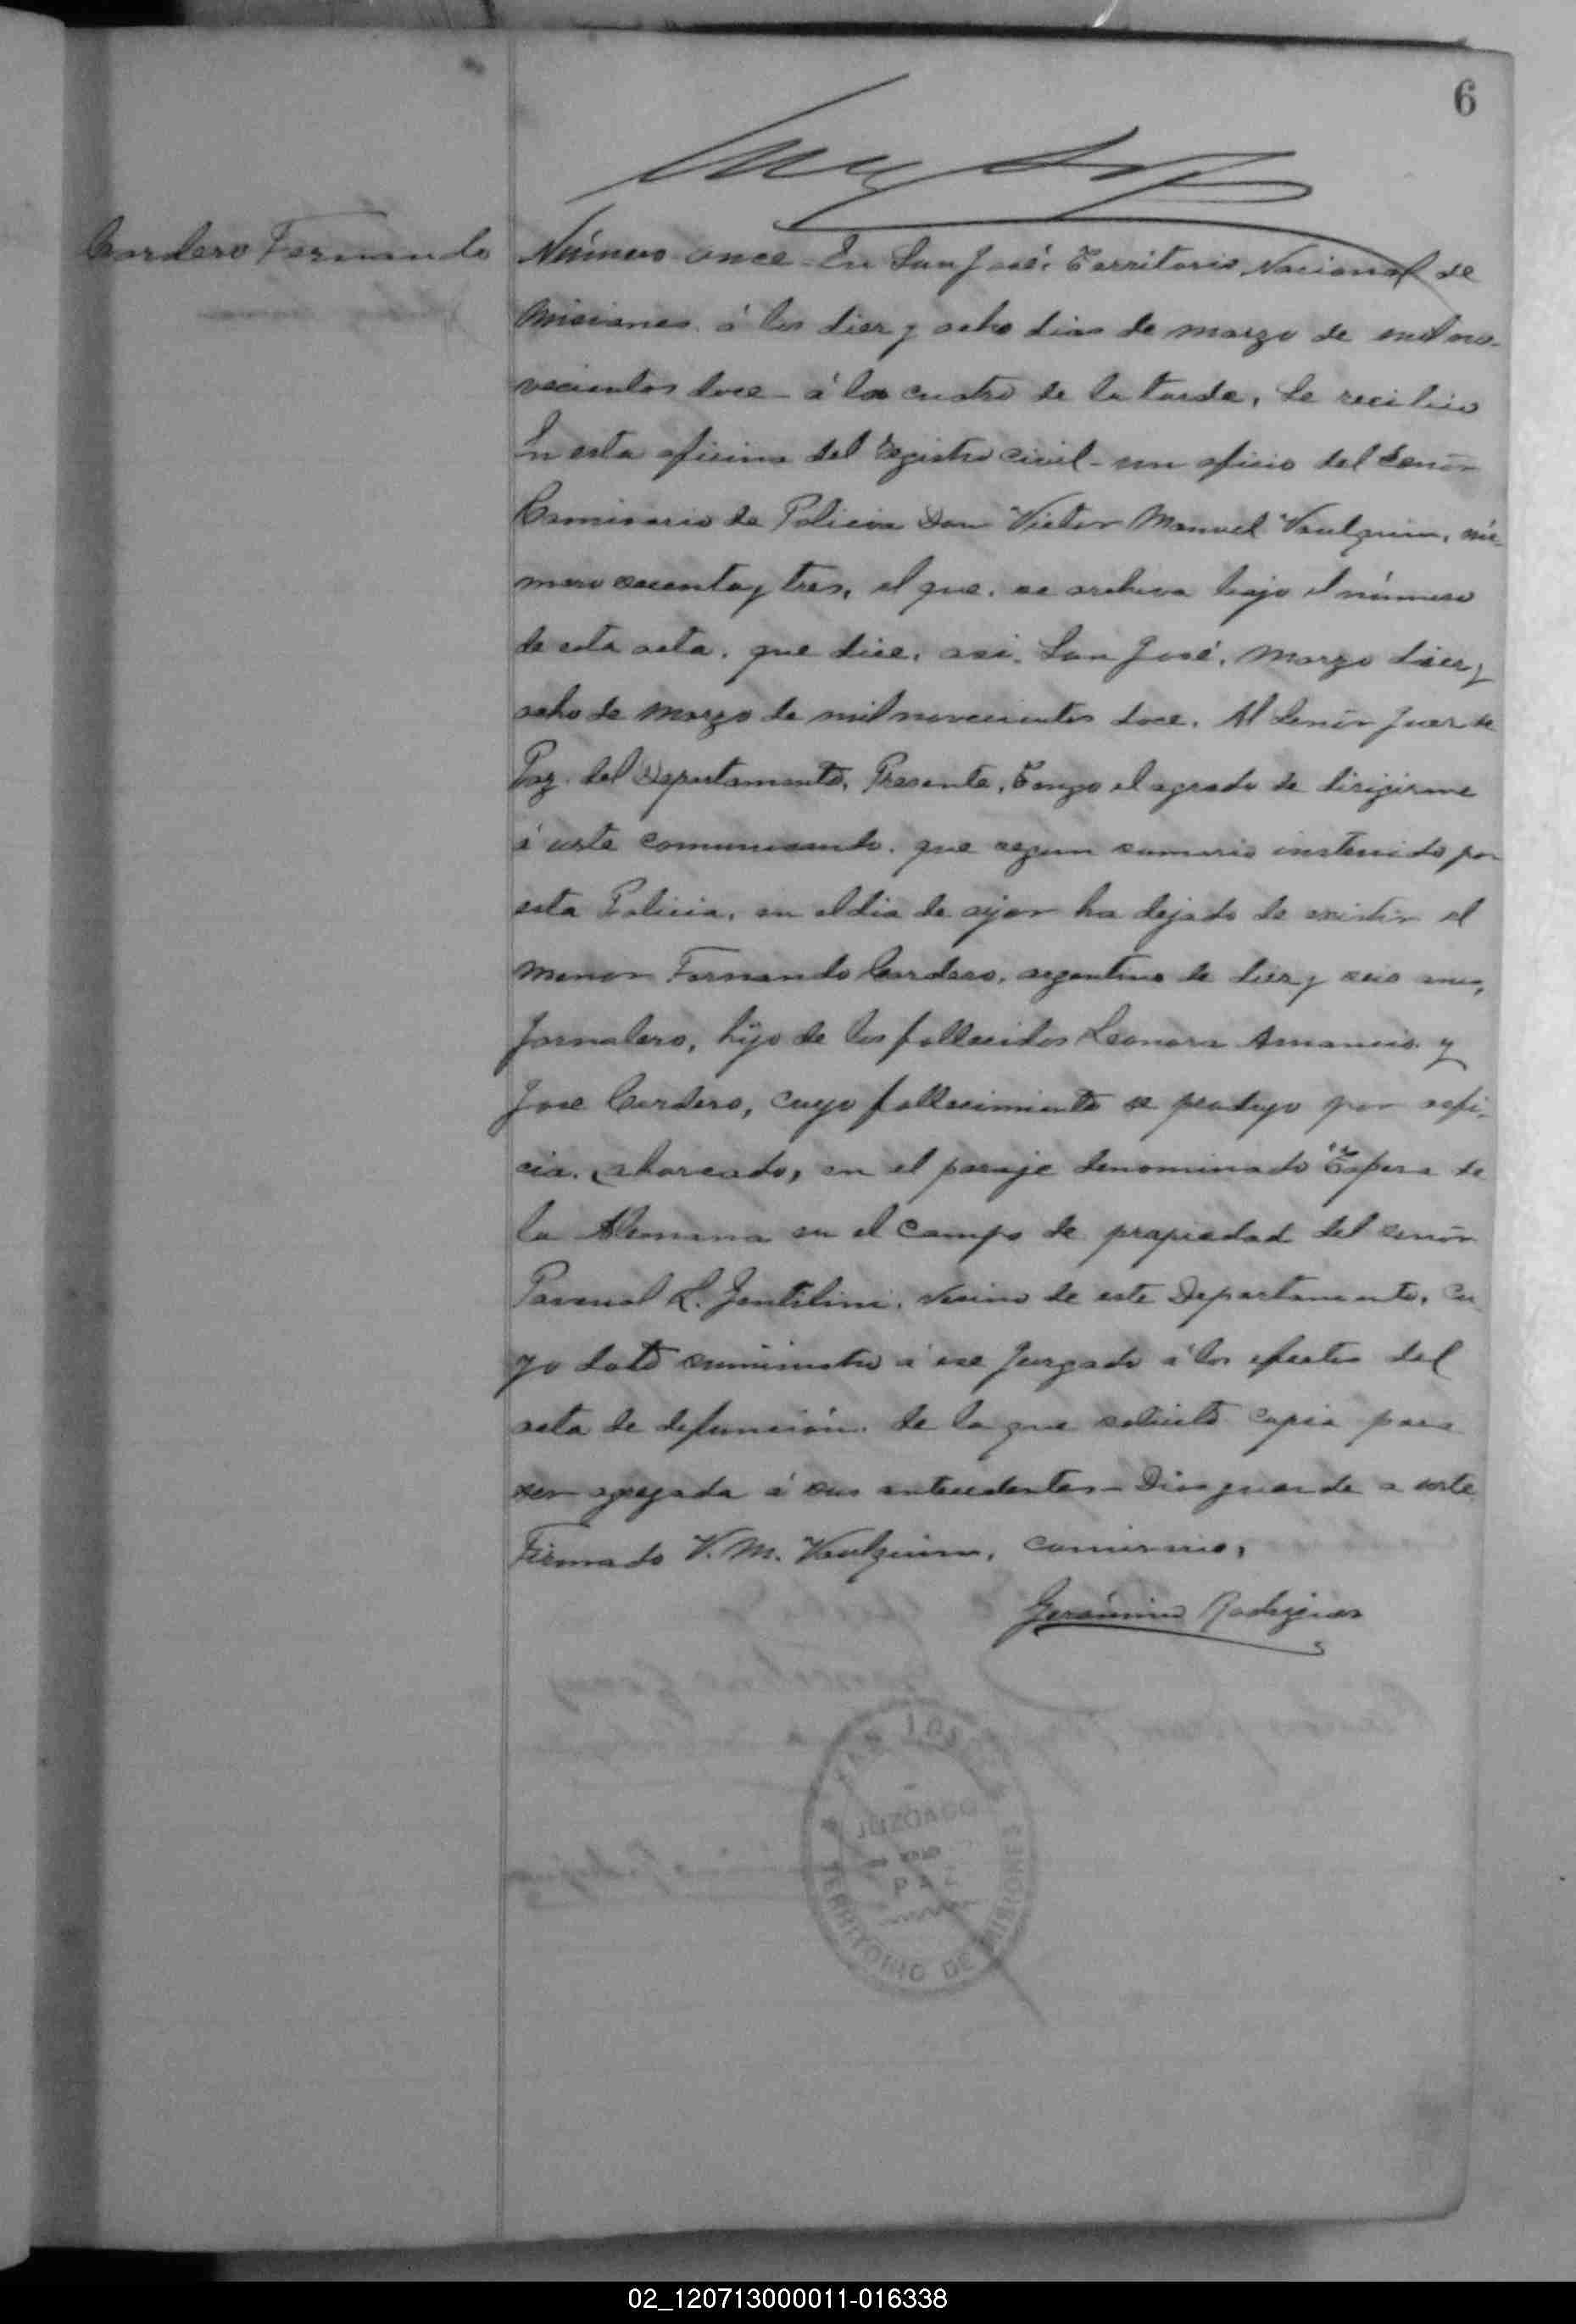 6
Cordero Fernando
Número once En San José, Territorio Nacional de
Misiones á los diez y ocho dias de marzo de mil no-
vecientos doce á las cuatro de la tarde, Se recibio
En esta oficina del registro civil un oficio del Senõr
Comisario de Policia Don Victor Manuel nú-
mero y tres, el que se archiva bajo el número
de esta acta, que dice, asi, San José, Marzo diez y
ocho de Marzo de mil novecientos doce. Al Senõr Juez de
Paz del Departamento, Presente, Tengo el agrado de dirigirme
á uste comunicando que segun sumario instruido por
esta Policia, en el dia de ayer ha dejado de existir el
menor Fernando Cordero, argentino de diez y seis anos,
Jornalero, hijo de los fallecidos Leonora Amancio y
Jose Cordero, cuyo fallecimiento se produjo por asfi-
cia, ahorcado, en el paraje denominado de
la Alemana en el campo de propiedad del senõr
Pascual L. Gentilini, vesino de este Departamento, Cu
yo dato suministro á ese Juzgado á los efectos del
acta de defuncion de la que solicito copia para
ser agregada á sus antecedentes Dios guarde a uste
Firmado V. M. comisario,
Gerónimo Rodriguez
SAN JOSE
JUZGADO
DE
PAZ
TERRITORIO DE MISIONES
02_120713000011-016338